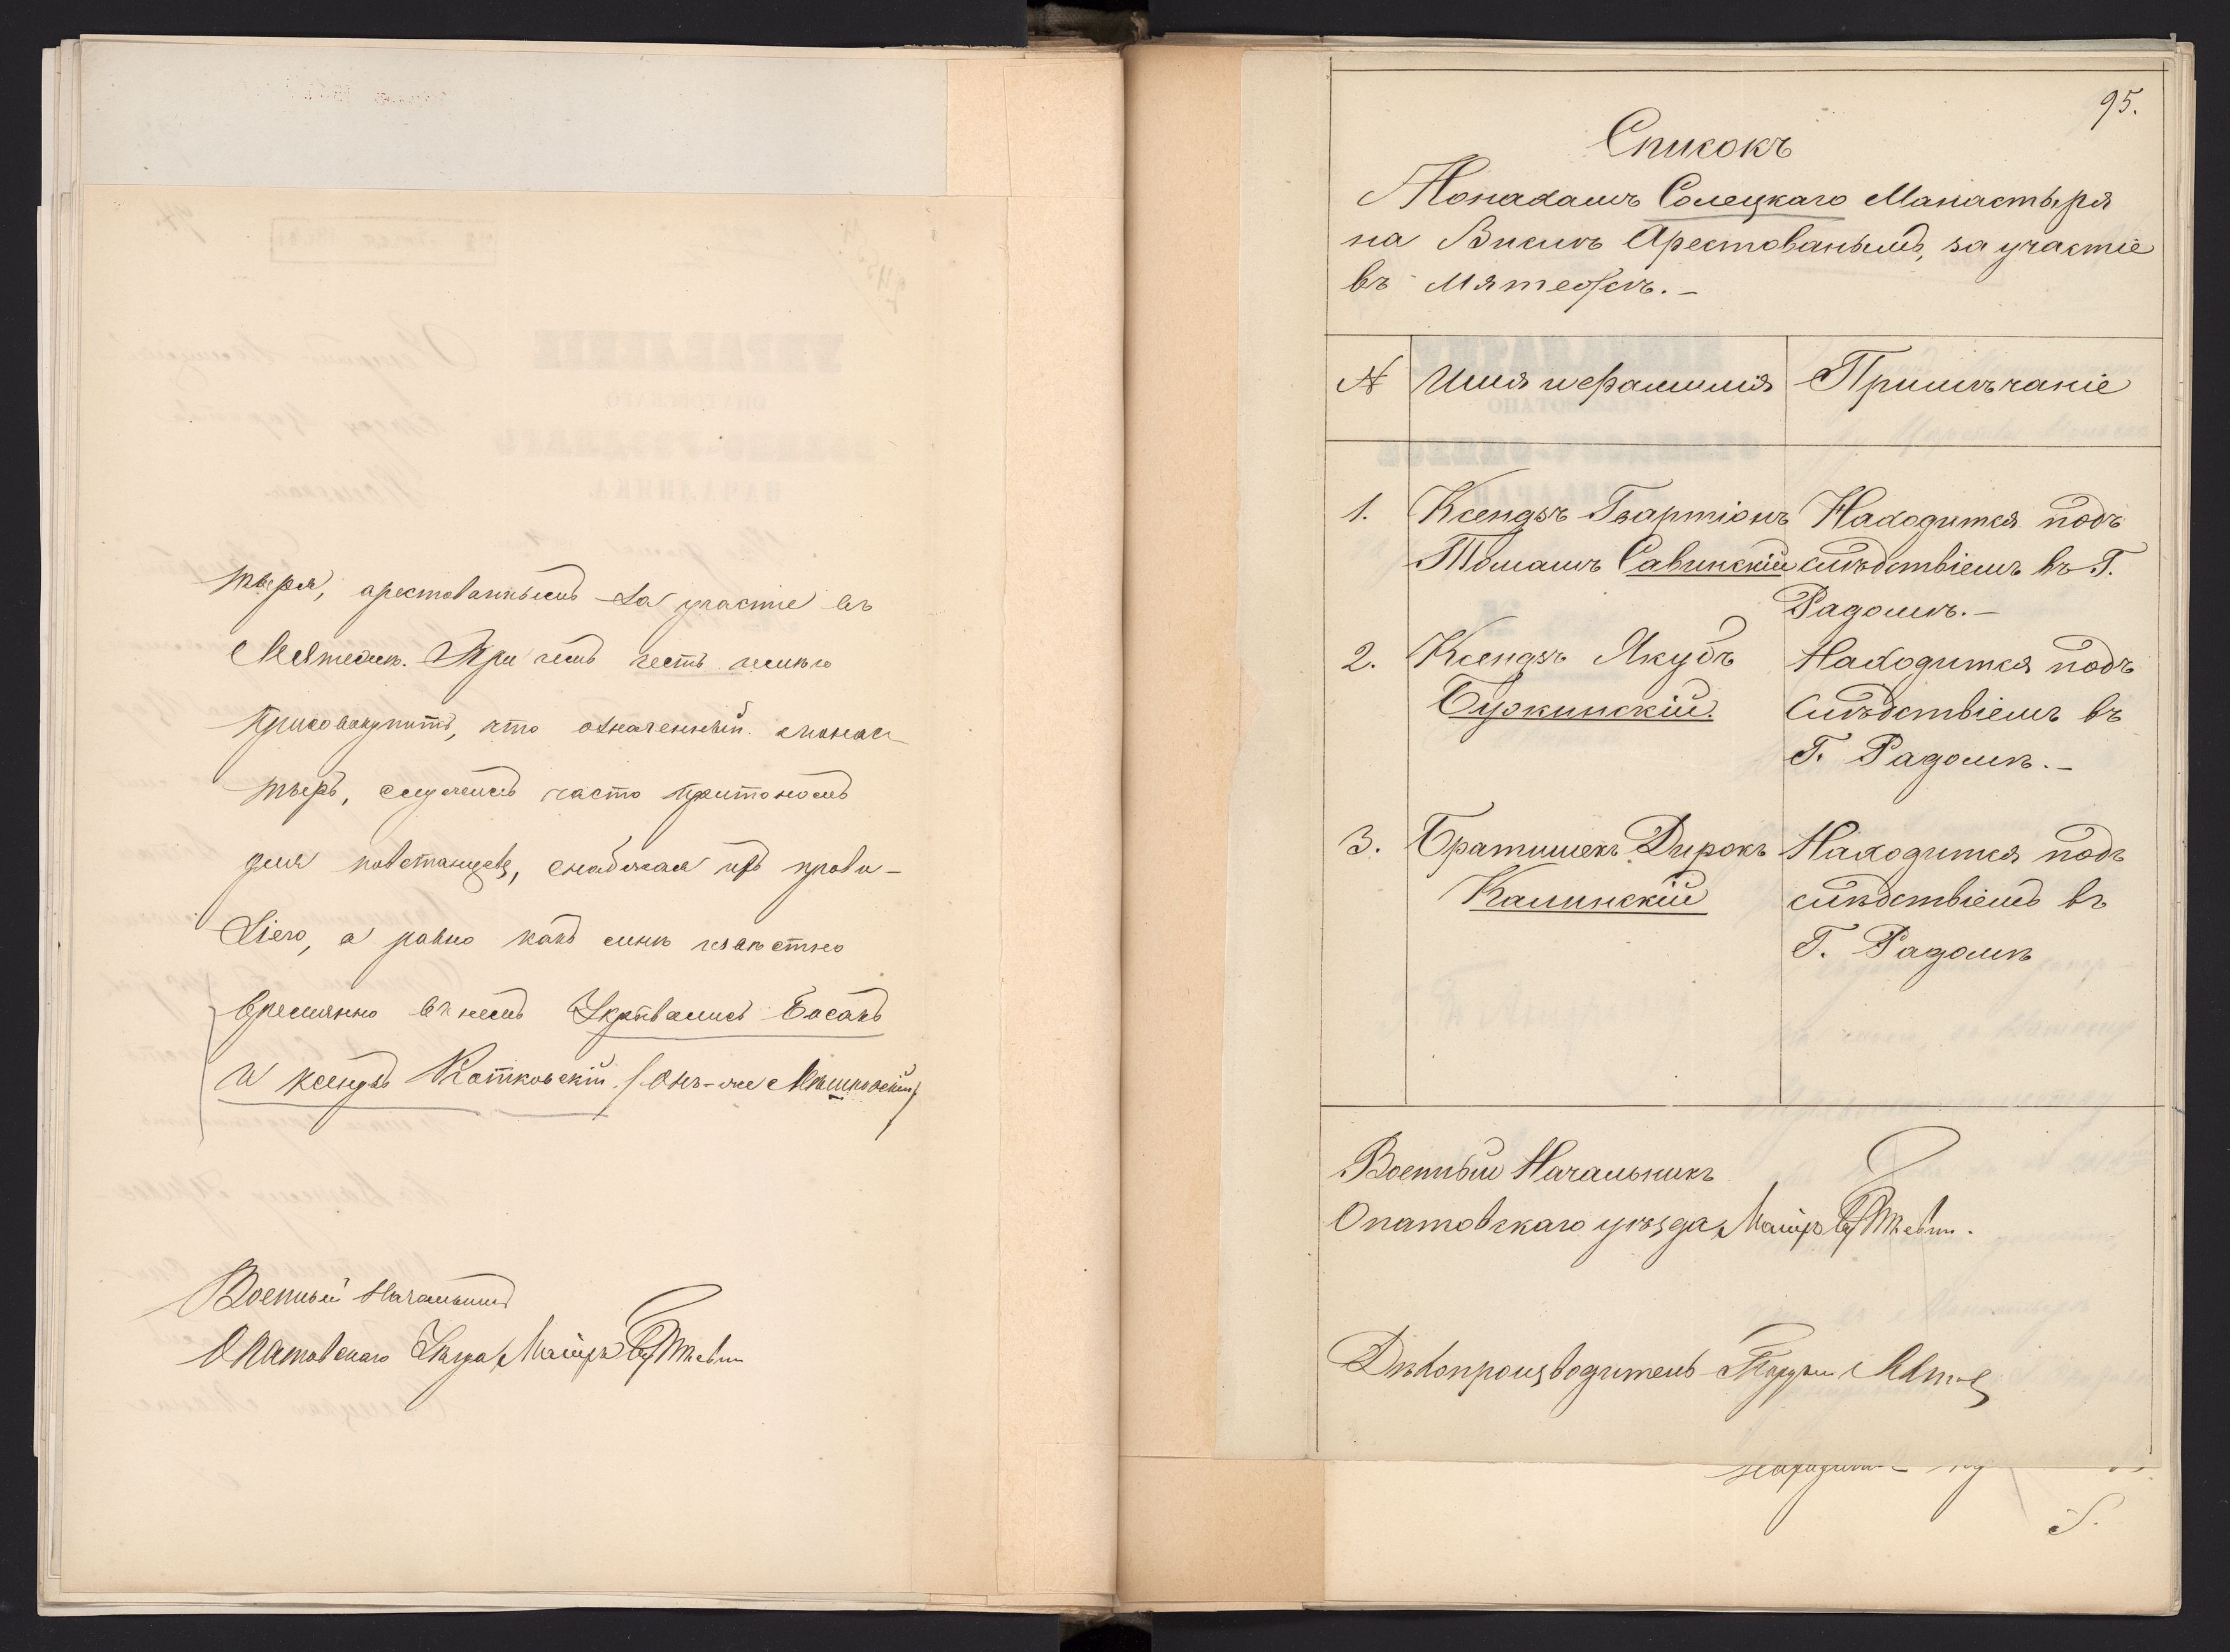 тыря, арестованнымъ за участіе въ
Мятежѣ. При чемъ честь имѣю
присовокупить, что означенный монас-
тырь, служилъ часто притономъ
для повстанцевъ, снабжая ихъ прови-
зіею, а равно какъ мнѣ извѣстно
временно въ немъ Укрывались Босакъ
и ксендзъ Котковскій /онъ-же
Военный Начальникъ
Опатовскаго Уѣзда, Маіоръ
95.
Списокъ
Монахамъ Солецкаго Манастыря
на Вислѣ Арестованымъ, за участіе
въ Мятежѣ. —
N Имя и фамилія Примѣчаніе
1. Ксендзъ Гвартіонъ Находится подъ
Томашъ Савинскій слѣдствіемъ въ Г.
Радомѣ. —
2. Ксендзъ Якубъ Находится подъ
Бужинскій. Слѣдствіемъ въ
Г. Радомѣ. —
3. Братишекъ Дирокъ Находится подъ
Калинскій слѣдствіемъ въ
Г. Радомѣ
Военный Начальникъ
Опатовскаго уѣзда, Маіоръ
Дѣлопроизводитель